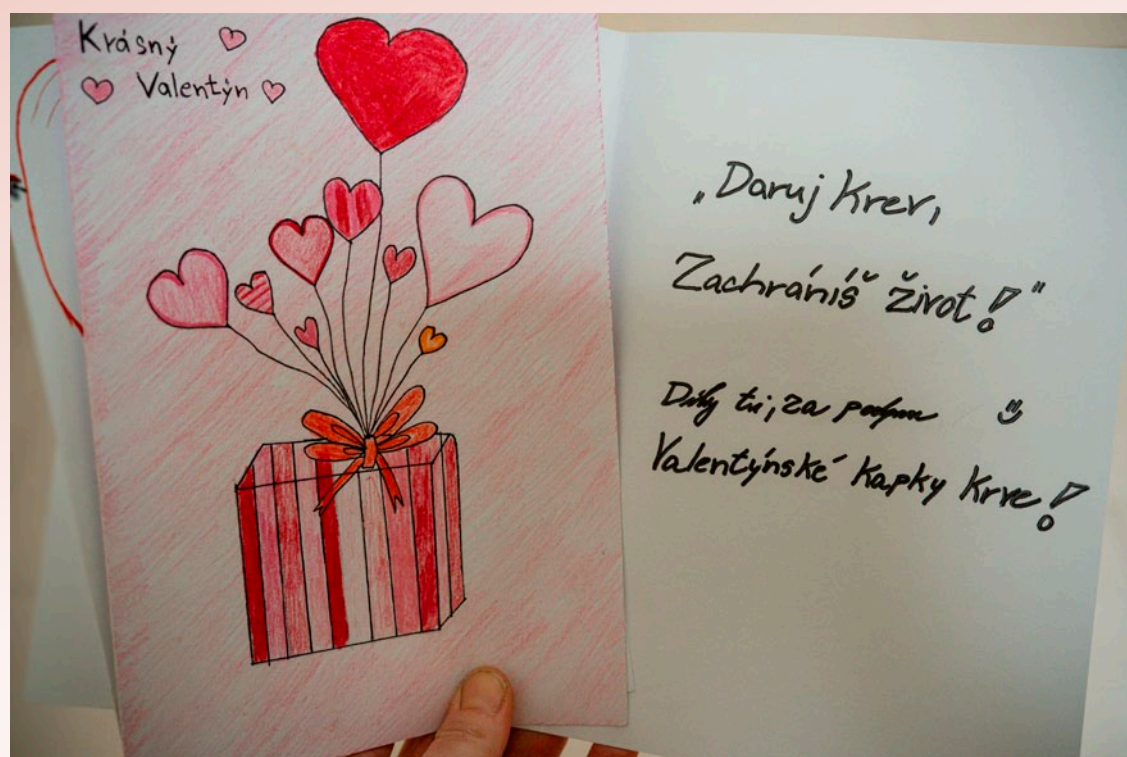 Krásný
Valentýn
„Daruj krev,
Zachráníš život!“
Díky ti, za
Valentýnské kapky krve!